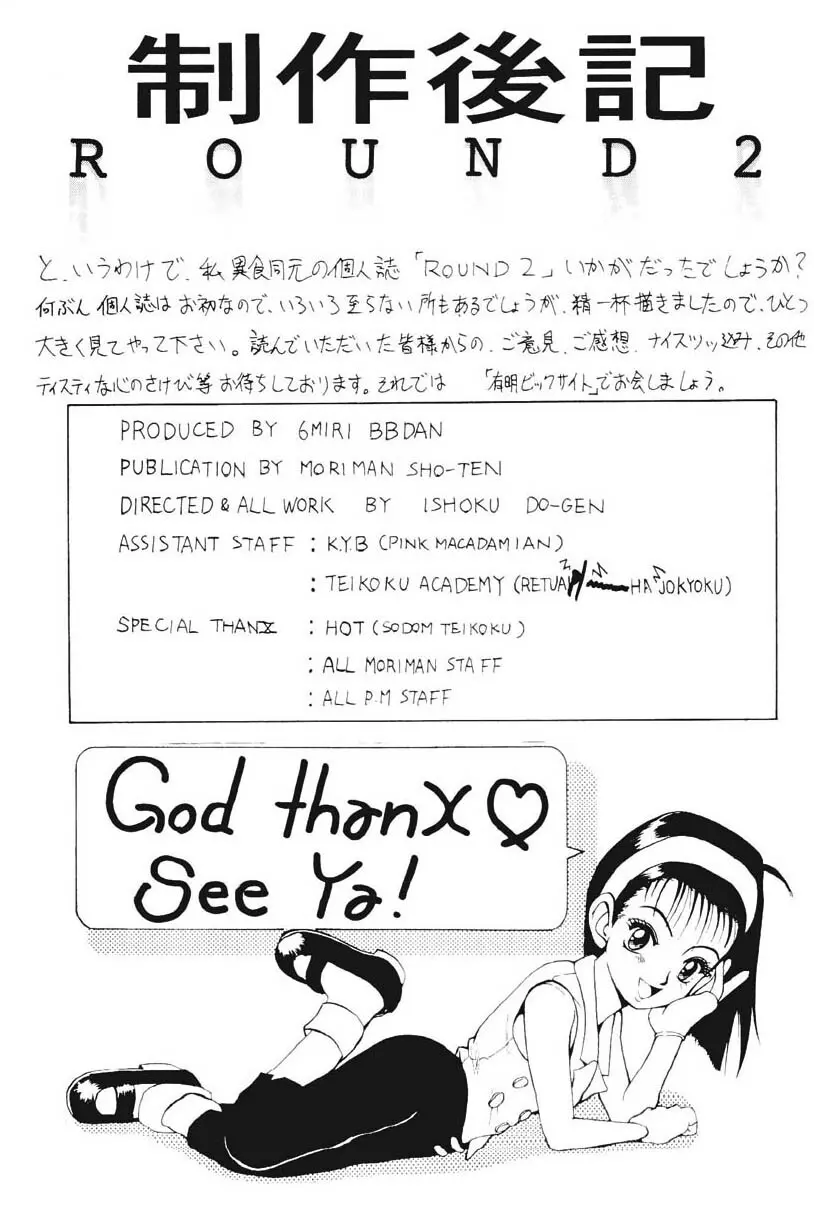 制作後記
ROUND2
と、いうわけで、私 異食同元の個人誌「ROUND2」いかがだったでしょうか?
何ぶん個人誌はお初なので、いろいろ至らない所もあるでしょうが、精一杯描きましたので、ひとつ
大きく見てやって下さい。読んでいただいた皆様からの、ご意見、ご感想、ナイスツッ込み、その他
ティスティな心のさけび等お待ちしております。それでは 「有明ビックサイト」でお会しましょう。
PRODUCED BY 6MIRI BBDAN
PUBLICATION BY MORIMAN SHO-TEN
DIRECTED & ALL WORK BY ISHOKU DO-GEN
ASSISTANT STAFF : K.Y.B (PINK MACADAMIAN)
: TEIKOKU ACADEMY (RETUA HA JOKYOKU)
SPECIAL THANX : HOT (SODOM TEIKOKU)
: ALL MORIMAN STAFF
: ALL P.M STAFF
God thanX♡
See Ya!